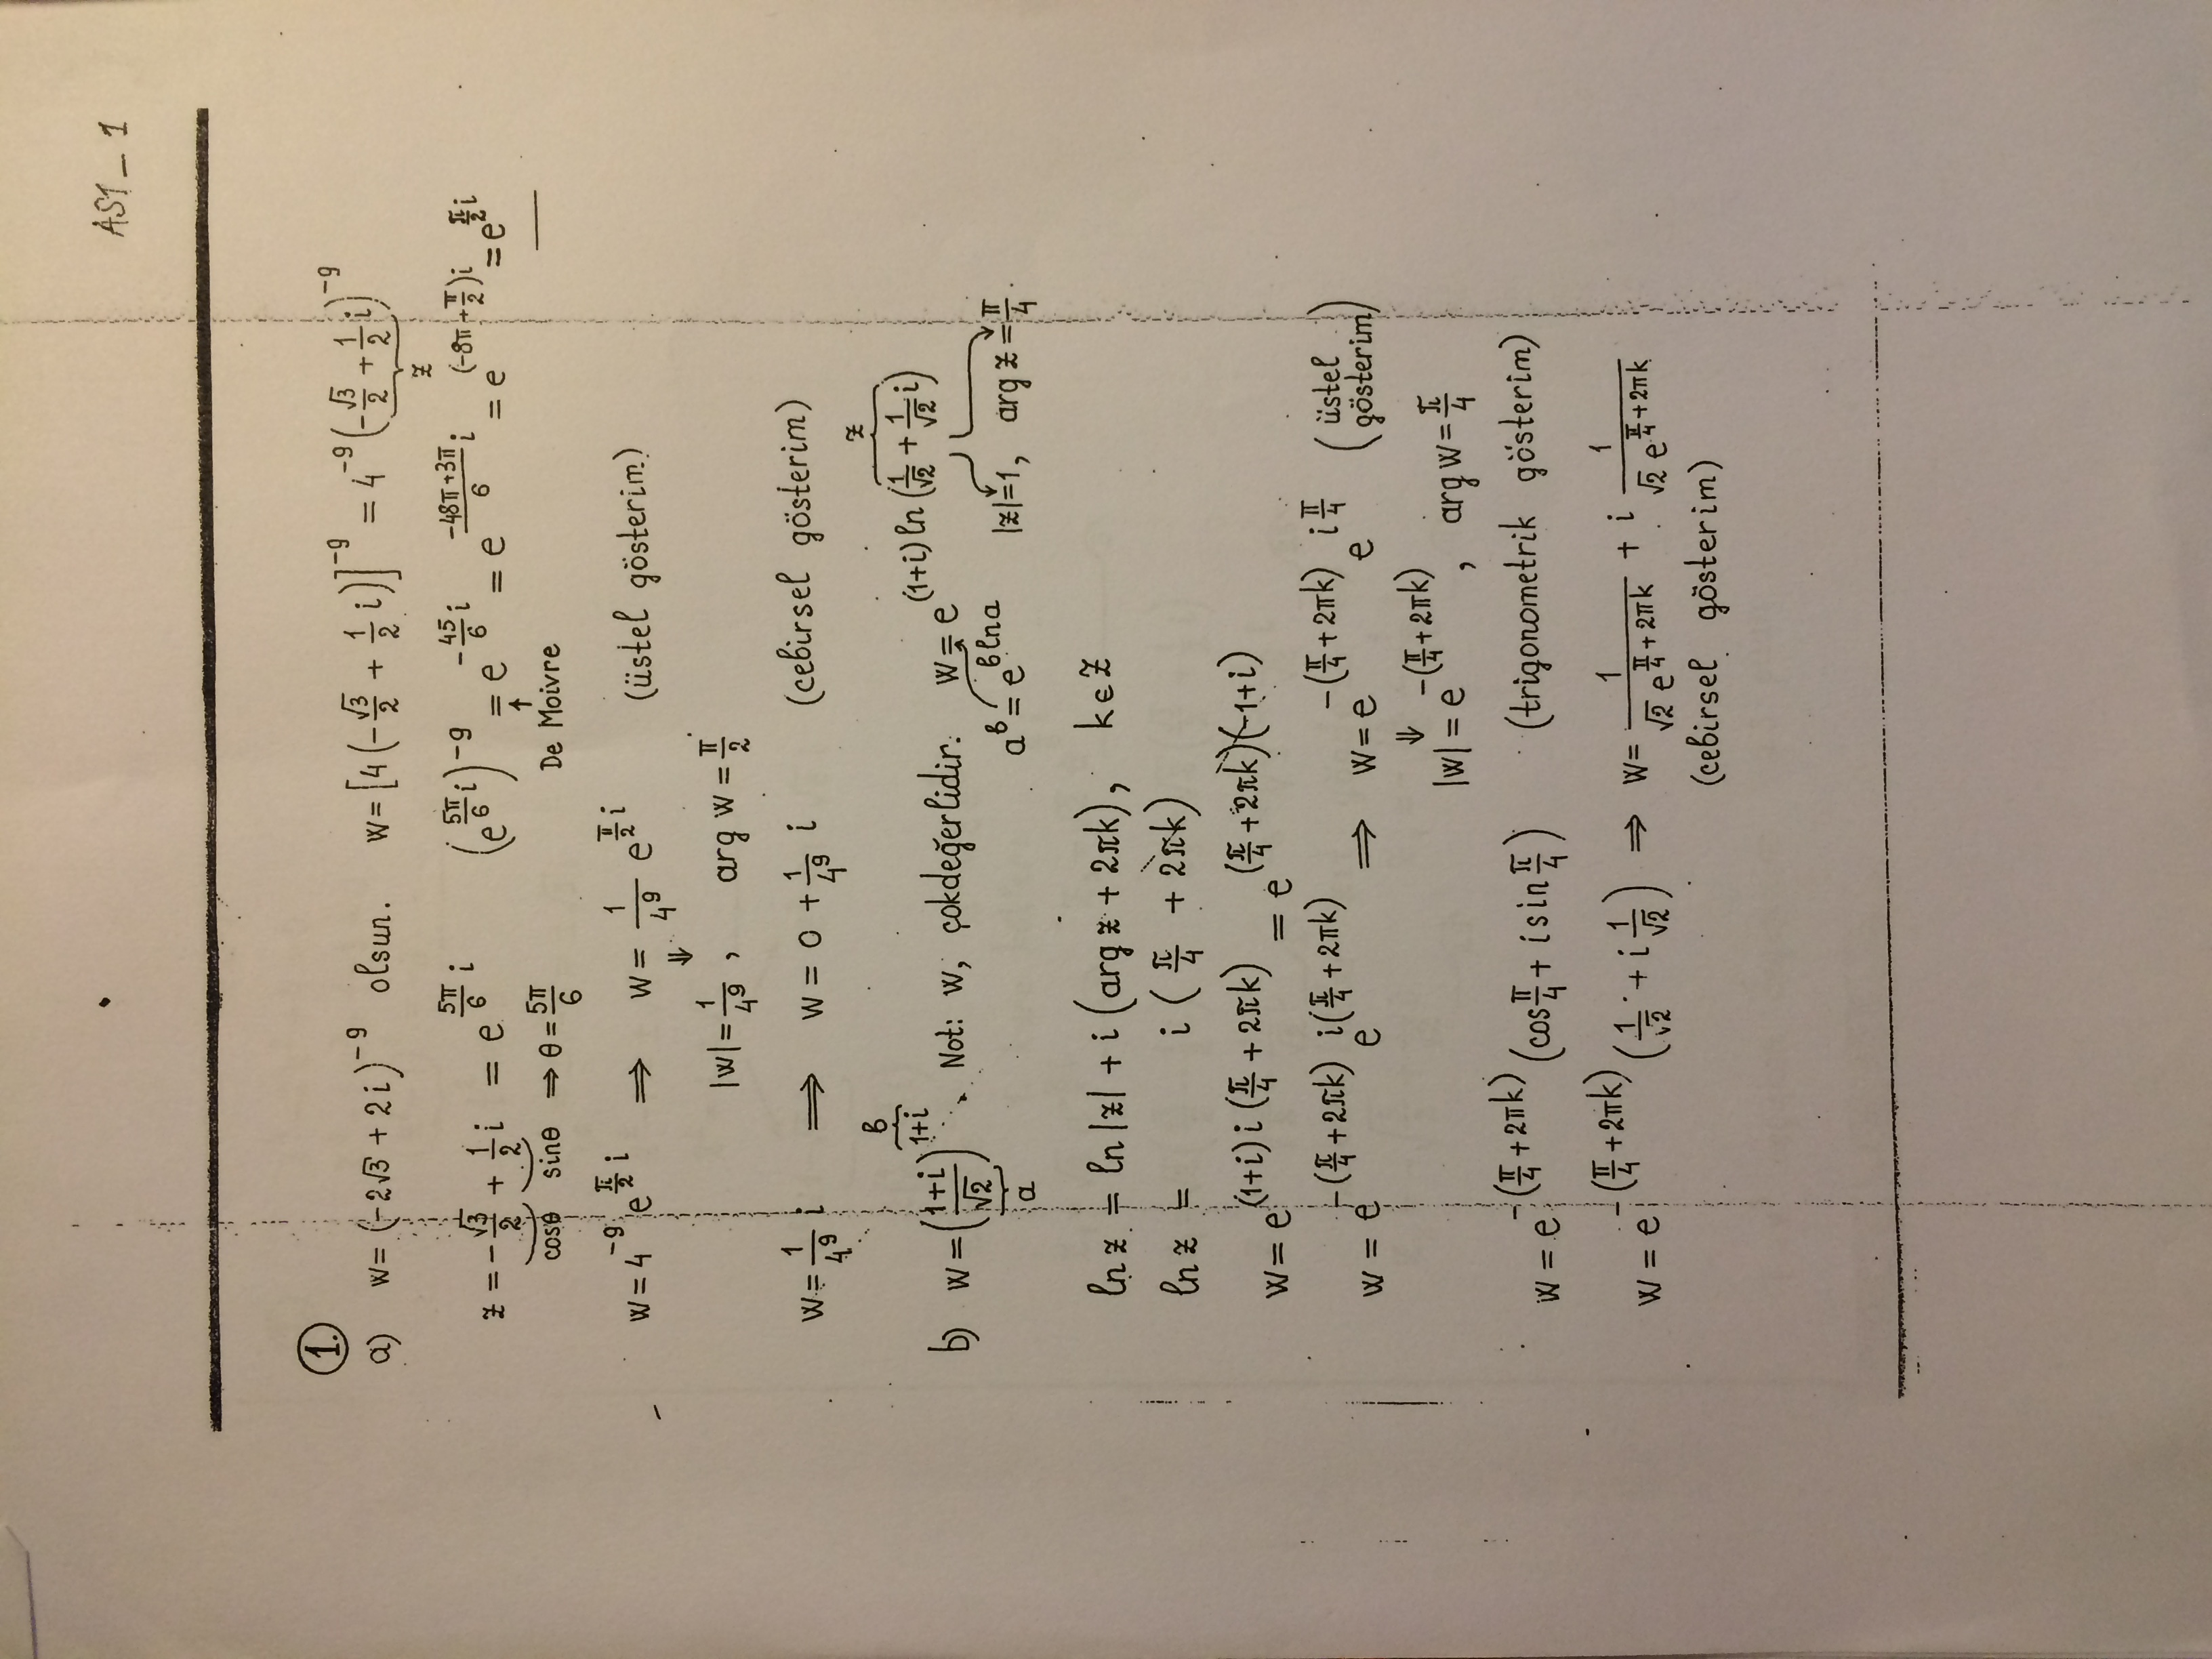 AS1_1
1.
a) w = (-2√3 + 2i)^{-9} olsun. w = [4(-√3/2 + 1/2 i)]^{-9} = 4^{-9} (-√3/2 + 1/2 i)^{-9}
z
z = -√3/2 + 1/2 i = e^{5π/6 i} (e^{5π/6 i})^{-9} = e^{-45/6 i} = e^{(-48π+3π)/6 i} = e^{(-8π+π/2)i} = e^{π/2 i}
cosθ sinθ ⇒ θ = 5π/6 ↑ De Moivre
w = 4^{-9} e^{π/2 i} ⇒ w = 1/4^9 e^{π/2 i} (üstel gösterim)
⇓
|w| = 1/4^9 , arg w = π/2
w = 1/4^9 i ⇒ w = 0 + 1/4^9 i (cebirsel gösterim)
b) w = ((1+i)/√2)^{1+i} . Not: w, çokdeğerlidir. w = e^{(1+i) ln (1/√2 + 1/√2 i)}
a b z
a^b = e^{b ln a} |z| = 1, arg z = π/4 .
ln z = ln |z| + i (arg z + 2πk), k ∈ Z
ln z = i (π/4 + 2πk)
w = e^{(1+i) i (π/4 + 2πk)} = e^{(π/4 + 2πk)(-1+i)}
w = e^{-(π/4 + 2πk)} e^{i(π/4 + 2πk)} ⇒ w = e^{-(π/4 + 2πk)} e^{i π/4} (üstel gösterim)
⇓
|w| = e^{-(π/4 + 2πk)} , arg w = π/4
w = e^{-(π/4 + 2πk)} (cos π/4 + i sin π/4) (trigonometrik gösterim)
w = e^{-(π/4 + 2πk)} (1/√2 + i 1/√2) ⇒ w = 1/(√2 e^{π/4 + 2πk}) + i 1/(√2 e^{π/4 + 2πk})
(cebirsel gösterim)